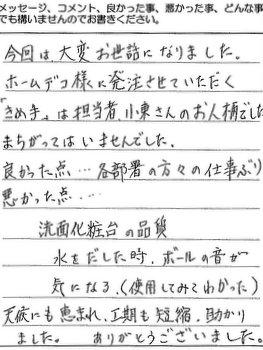 メッセージ、コメント、良かった事、悪かった事、どんな事
でも構いませんのでお書きください。
今回は、大変お世話になりました。
ホームデコ様に発注させていただく
「きめ手」は担当者、小東さんのお人柄でした
まちがってはいませんでした。
良かった点…各部署の方々の仕事ぶり
悪かった点…
洗面化粧台の品質
水をだした時、ボールの音が
気になる。(使用してみてわかった)
天候にも恵まれ、工期も短縮、助かり
ました。ありがとうございました。